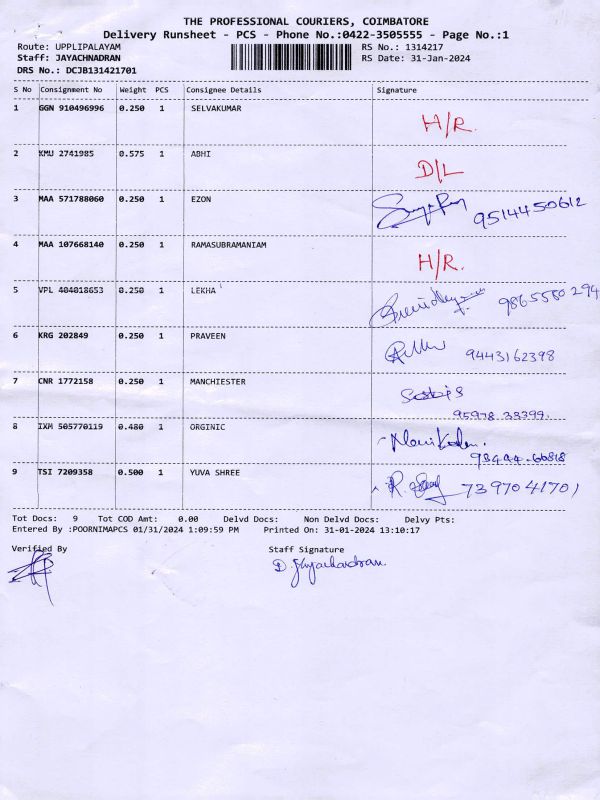 THE PROFESSIONAL COURIERS, COIMBATORE
Delivery Runsheet - PCS - Phone No.:0422-3505555 - Page No.:1
Route: UPPLIPALAYAM RS No.: 1314217
Staff: JAYACHNADRAN RS Date: 31-Jan-2024
DRS No.: DCJB131421701
S No Consignment No Weight PCS Consignee Details Signature
1 GGN 910496996 0.250 1 SELVAKUMAR H/R.
2 KMU 2741985 0.575 1 ABHI D/L
3 MAA 571788060 0.250 1 EZON 9514450612
4 MAA 107668140 0.250 1 RAMASUBRAMANIAM H/R.
5 VPL 404018653 0.250 1 LEKHA 9865580294
6 KRG 202849 0.250 1 PRAVEEN 9443162398
7 CNR 1772158 0.250 1 MANCHIESTER
95978 33399.
8 IXM 505770119 0.480 1 ORGINIC
9 TSI 7209358 0.500 1 YUVA SHREE 7397041701
Tot Docs: 9 Tot COD Amt: 0.00 Delvd Docs: Non Delvd Docs: Delvy Pts:
Entered By :POORNIMAPCS 01/31/2024 1:09:59 PM Printed On: 31-01-2024 13:10:17
Verified By Staff Signature